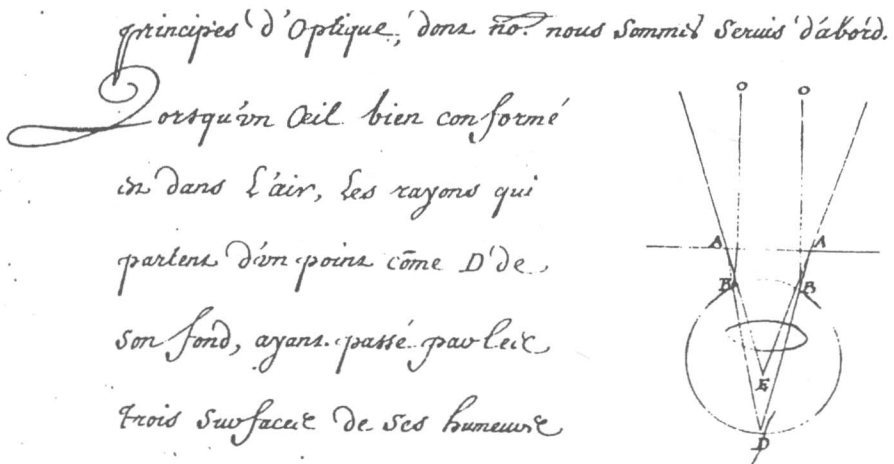 principes d'Optique, dont no. nous sommes servis d'abord.
Lorsqu'un Œil bien conformé
est dans l'air, les rayons qui
partent d'un point cõme D de
son fond, ayant passé par les
trois surfaces de ses humeurs
O O
A A
B B
E
D